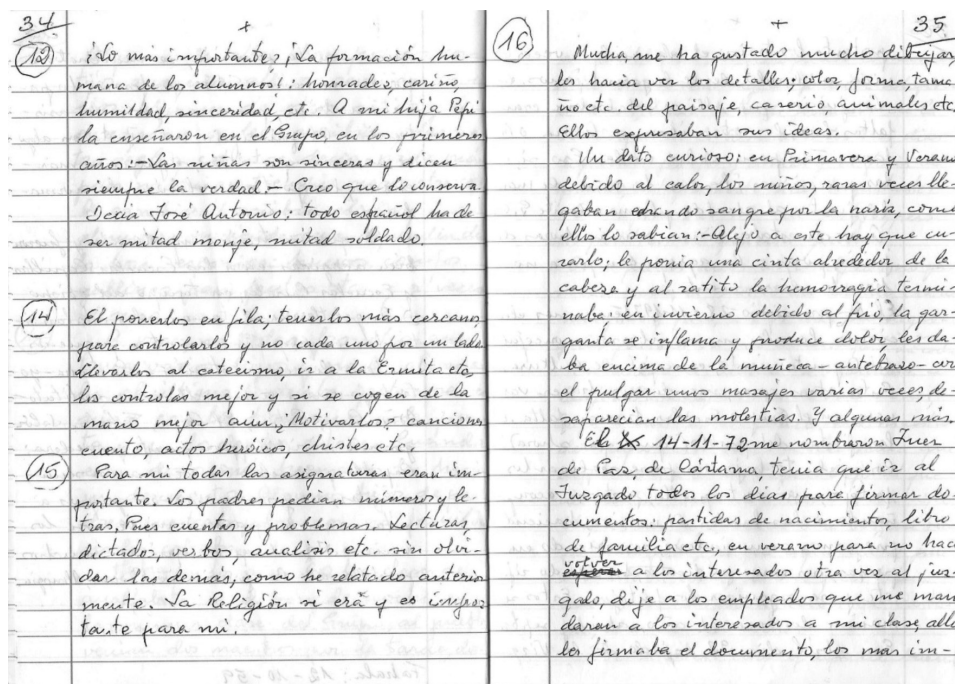 34
+
12) ¿Lo más importante? ¡La formación hu-
mana de los alumnos!: honradez, cariño,
humildad, sinceridad, etc. A mi hija Pepi
la enseñaron en el Grupo, en los primeros
años:-Las niñas son sinceras y dicen
siempre la verdad.- Creo que lo conserva.
Decia José Antonio: todo español ha de
ser mitad monje, mitad soldado.
14) El ponerlos en fila; tenerlos más cercano
para controlarlos y no cada uno por un lado.
Llevarlos al catecismo, ir a la Ermita etc,
los controlas mejor y si se cogen de la
mano mejor aún; Motivarlos? canciones
cuento, actos heróicos, chistes etc.
15) Para mi todas las asignaturas eran im-
portante. Los padres pedian números y le-
tras. Pues cuentas y problemas. Lecturas,
dictados, verbos, analisis etc. sin olvi-
dar las demás, como he relatado anterior
mente. La Religión si erá y es impor
tante para mi.
+
35
16) Mucha, me ha gustado mucho dibujar,
les hacia ver los detalles; color, forma, tama
ño etc. del paisaje, caserio, animales etc.
Ellos expresaban sus ideas.
Un dato curioso: en Primavera y Verano
debido al calor, los niños, raras veces lle-
gaban echando sangre por la nariz, como
ellos lo sabian:-Alejo a este hay que cu-
rarlo; le ponia una cinta alrededor de la
cabeza y al ratito la hemorragia termi-
naba: en invierno debido al frio, la gar-
ganta se inflama y produce dolor, les da-
ba encima de la muñeca - antebrazo - con
el pulgar unos masajes varias veces, de-
saparecian las molestias. Y algunas más.
El 14-11-72 me nombraron Juez
de Paz, de Cártama, tenia que ir al
Juzgado todos los dias para firmar do-
cumentos: partidas de nacimientos, libro
de familia etc, en verano para no hac
volver
a los interesados otra vez al juz-
gado, dije a los empleados que me man
daran a los interesados a mi clase, alli
les firmaba el documento, los más im-